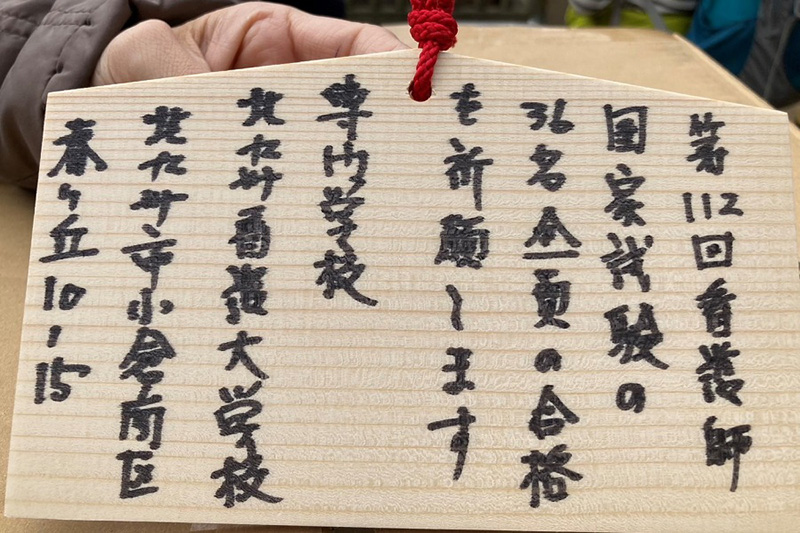 第112回看護師
国家試験の
36名全員の合格
を祈願します
専門学校
北九州看護大学校
北九州市小倉南区
春ヶ丘10-15